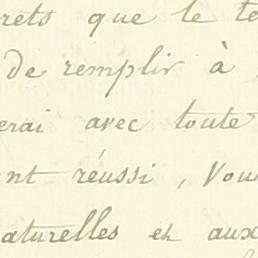 rets que le te
de remplir à
erai avec toute
nt réussi, Vou
aturelles et aux